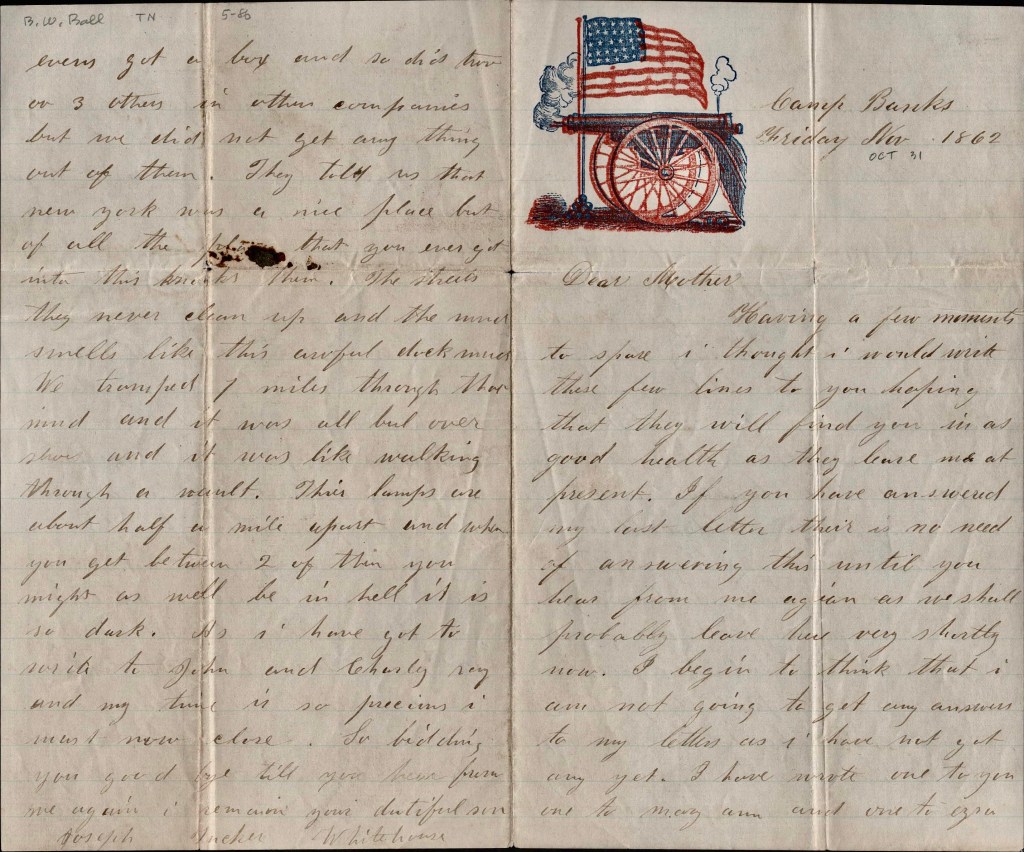 B. W. Ball TN 5-86
Camp Banks
Friday Nov. 1862
OCT 31
Dear Mother
Having a few moments
to spare i thought i would write
these few lines to you hoping
that they will find you in as
good health as they leave me at
present. If you have answered
my last letter their is no need
of answering this until you
hear from me agian as we shall
probably leave here very shortly
now. I begin to think that i
am not going to get any answers
to my letters as i have not got
any yet. I have wrote one to you
one to mary ann and one to ezra
evens got a box and so did two
or 3 others in other companies
but we did not get any thing
out of them. They told us that
new york was a nice place but
of all the that you ever got
into this them. The streets
they never clean up and the mud
smells like this awful dock mud
We tramped 7 miles through that
mud and it was all but over
shoe and it was like walking
through a vault. This lamps are
about half a mile apart and when
you get between 2 of them you
might as well be in hell it is
so dark. As i have got to
write to John and Charley ray
and my time is so precious i
must now close. So bidding
you good bye till you hear from
me again i remain your dutiful son
Joseph Tucker Whitehouse